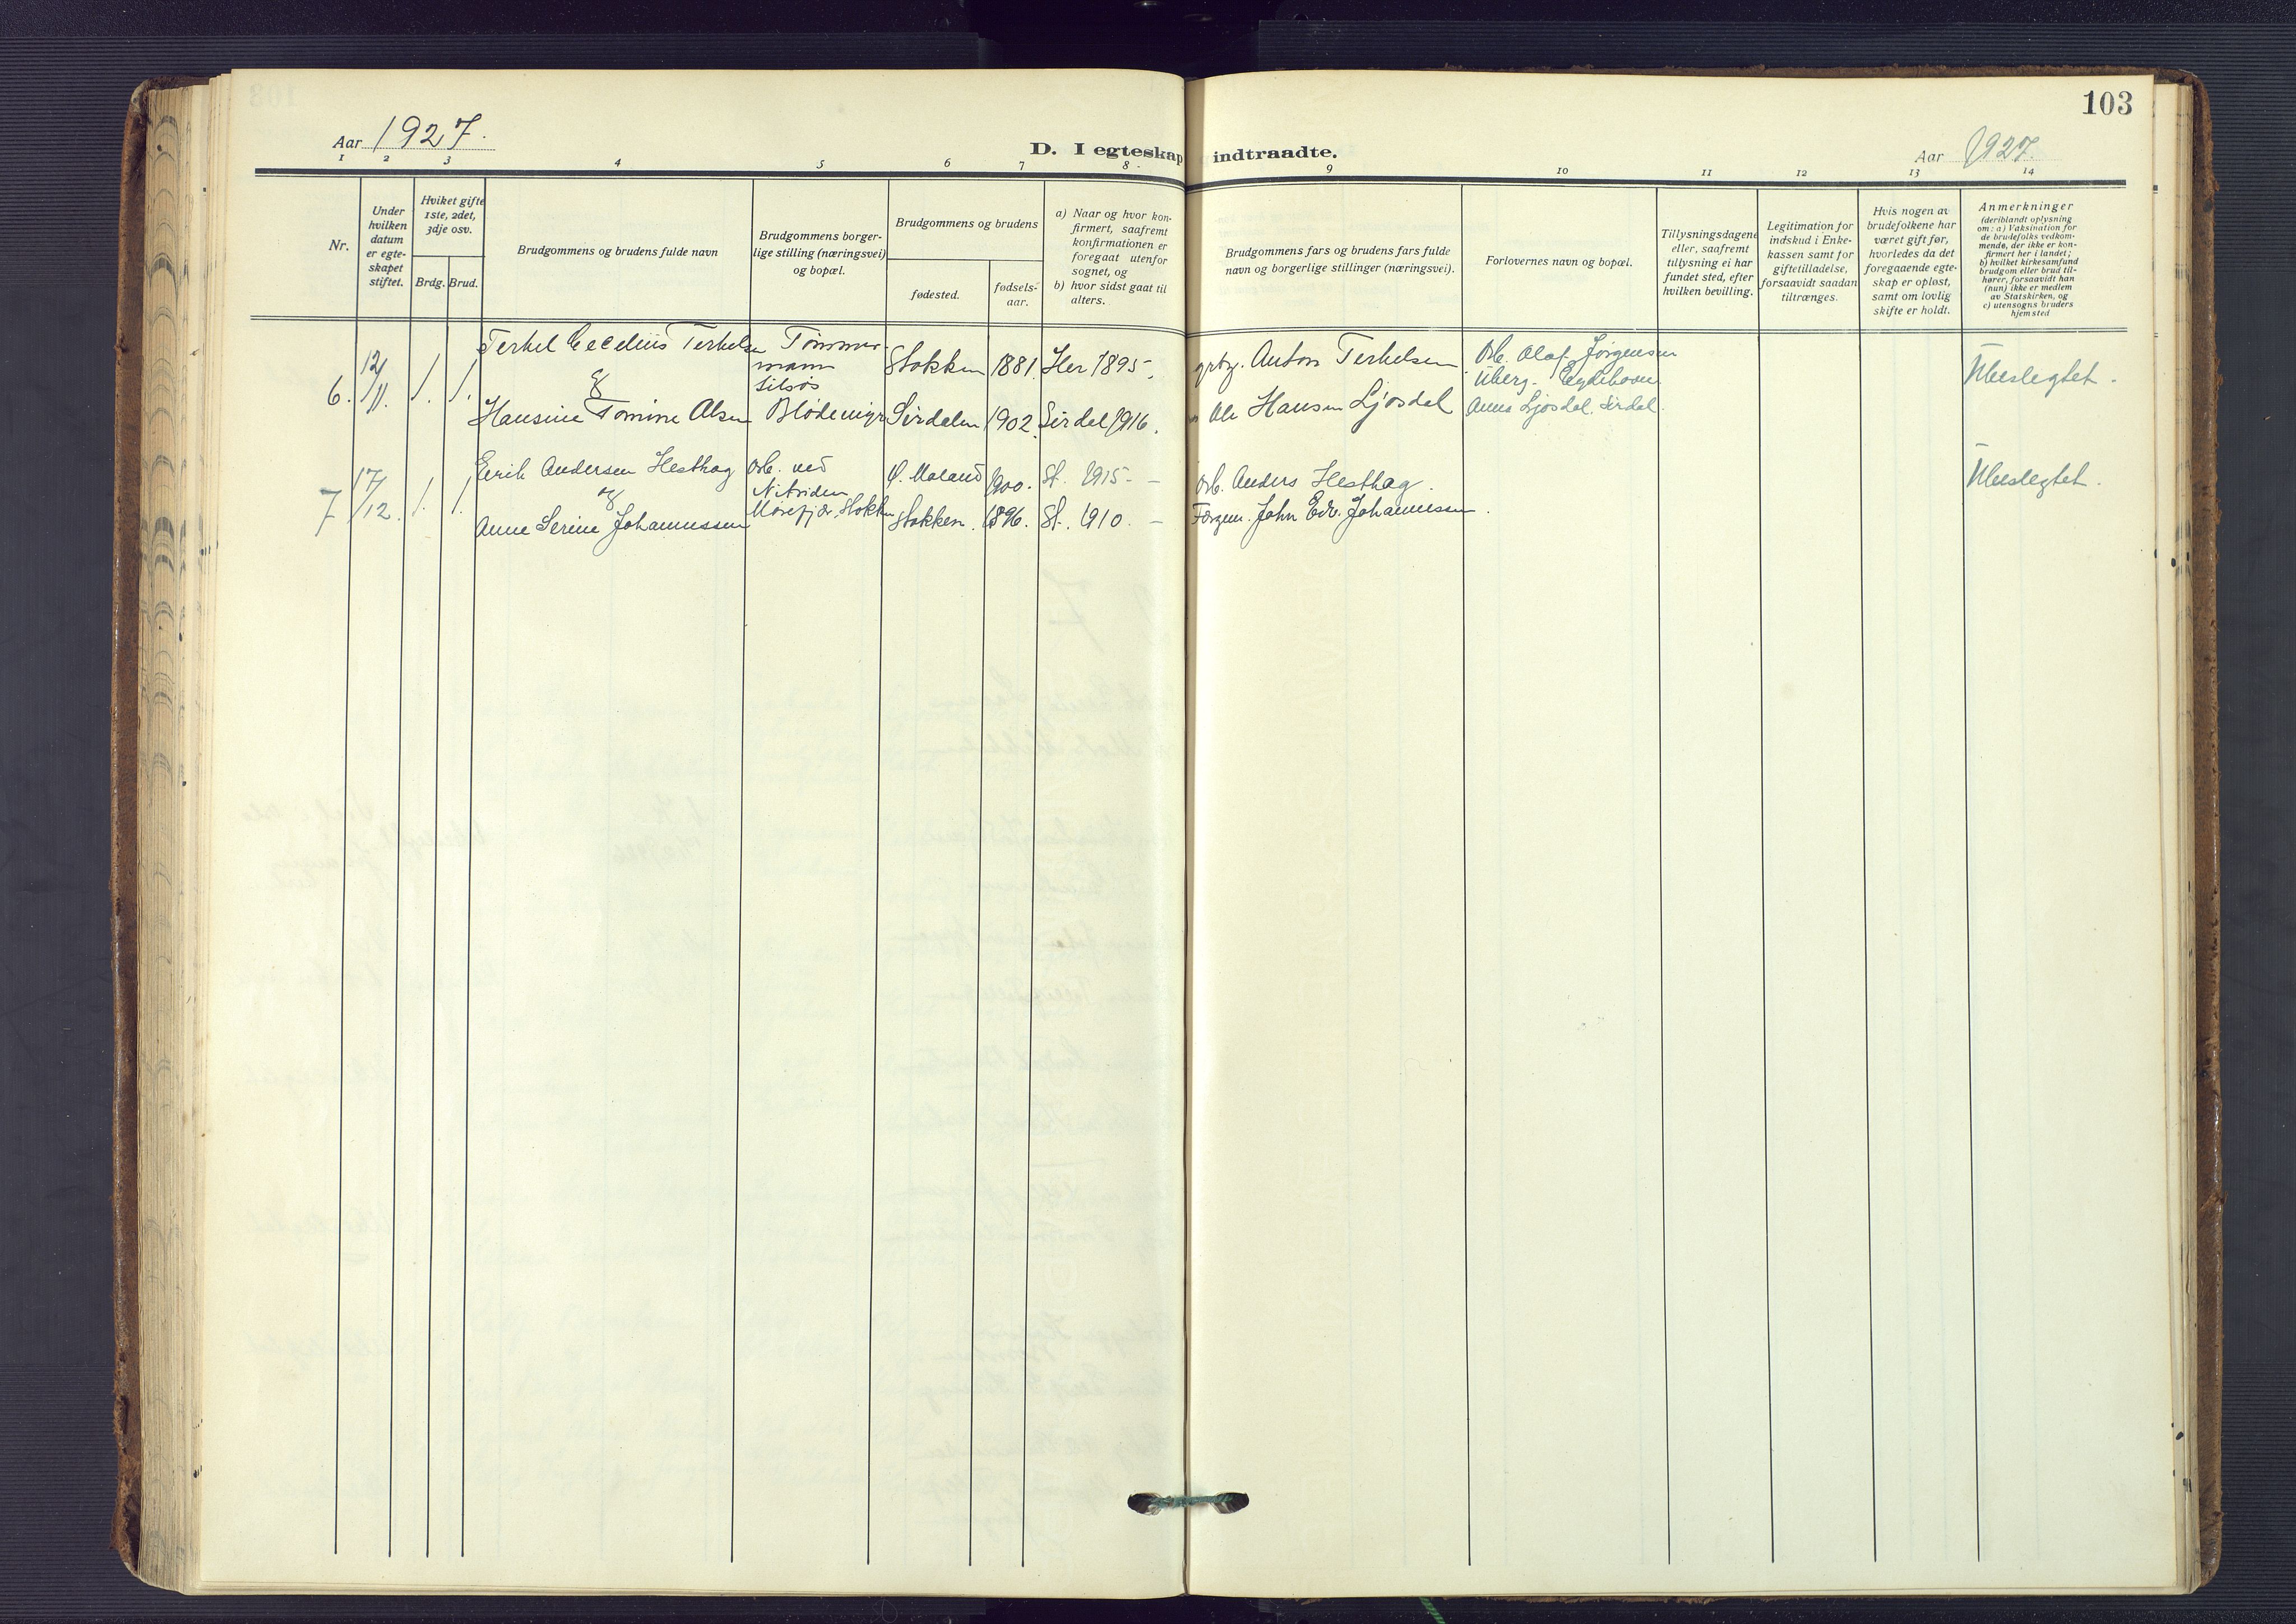 103
Aar 1927.
D. I egteskap indtraadte.
Aar 1927.
1 2 3 4 5 6 7 8 9 10 11 12 13 14
Nr.
Under
hvilken
datum
er egte-
skapet
stiftet.
Hviket gifte
1ste, 2det,
3dje osv.
Brdg. Brud.
Brudgommens og brudens fulde navn
Brudgommens borger-
lige stilling (næringsvei)
og bopæl.
Brudgommens og brudens
fødested.
fødsels-
aar.
a) Naar og hvor kon-
firmert, saafremt
konfirmationen er
foregaat utenfor
sognet, og
b) hvor sidst gaat til
alters.
Brudgommens fars og brudens fars fulde
navn og borgerlige stillinger (næringsvei).
Forlovernes navn og bopæl.
Tillysningsdagene
eller, saafremt
tillysning ei har
fundet sted, efter
hvilken bevilling.
Legitimation for
indskud i Enke-
kassen samt for
giftetilladelse,
forsaavidt saadan
tiltrænges.
Hvis nogen av
brudefolkene har
været gift før,
hvorledes da det
foregaaende egte-
skap er opløst,
samt om lovlig
skifte er holdt.
Anmerkninger
(deriblandt oplysning
om: a) Vaksination for
de brudefolks vedkom-
mende, der ikke er kon-
firmert her i landet;
b) hvilket kirkesamfund
brudgom eller brud til-
hører, forsaavidt han
(hun) ikke er medlem
av Statskirken, og
c) utensogns bruders
hjemsted
6. 12/11. 1. 1.
Terkel Terkelsen
&
Hansine Tomine Olsen
Tømmer-
mann
Stokken 1881. Her 1895.
Sirdalen 1902. Sirdal 1916.
Anton Terkelsen
Ole Hansen Ljosdal
Arb. Olaf Jørgensen
Anna Ljosdal, Sirdal.
Ubeslegtet.
7 17/12. 1. 1.
Eerik Andersen Hesthag
og
Anne Serine Johannessen
Arb. ved
Nitriden
Morefjær, Stokken
Ø. Moland 1900. St. 1915. –
Stokken. 1896. St. 1910. –
Arb. Anders Hesthag.
John Edv. Johannessen.
Ubeslegtet.